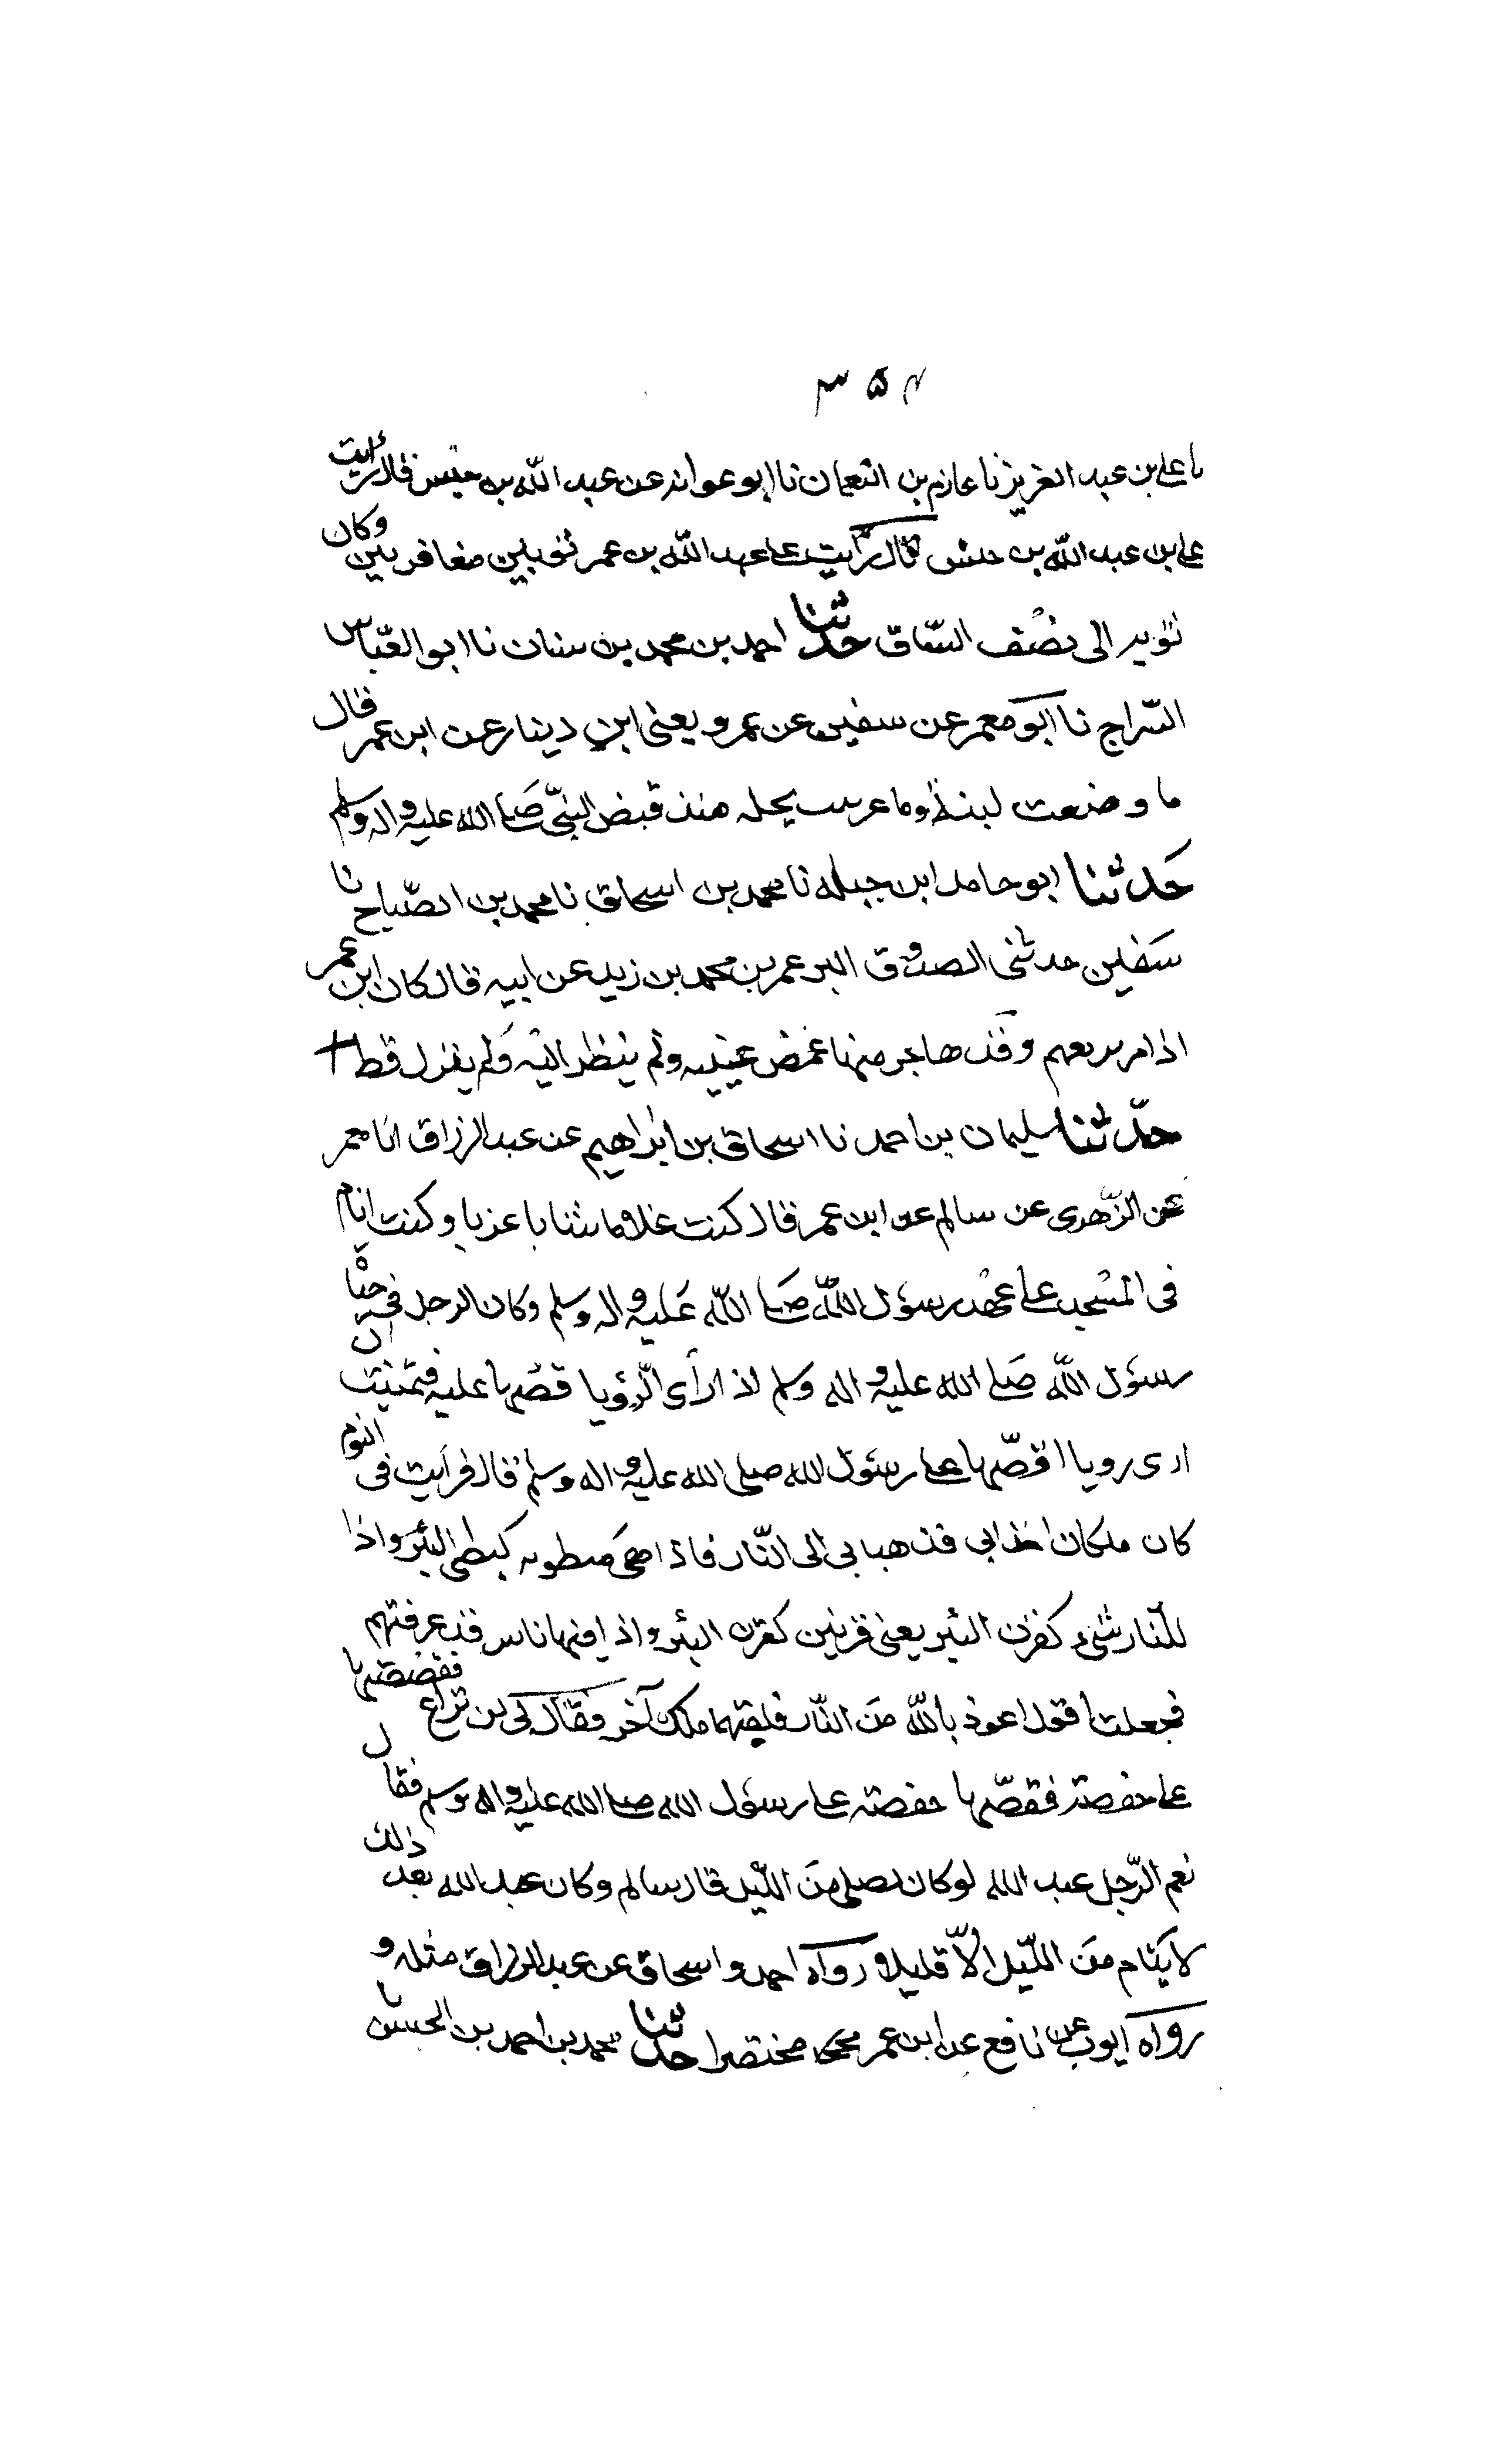 ۳۵۴
نا علی بن عبد العزیز نا عارم بن النعمان نا ابو عوانه عن عبد الله بن حنیس قال رأیت
علی بن عبد الله بن حنش قال رأیت علی عبد الله بن عمر ثوبین معافریین وکان
ثوبه الی نصف الساق حدثنا احمد بن محمد بن سنان نا ابو العباس
السراج نا ابو معمر عن سفین عن عمرو یعنی ابن دینار عن ابن عمر قال
ما وضعت لبنة وما غرست نخله منذ قبض النبی صلی الله علیه واله وسلم
حدثنا ابو حامد ابن جبله نا محمد بن اسحاق نا محمد بن الصباح نا
سفین حدثنی الصدوق البر عمر بن محمد بن زید عن ابیه قال کان ابن عمر
اذا مر بربعهم وقد هاجر منها غمض عینیه ولم ینظر الیه ولم ینزل قط
حدثنا سلیمان بن احمد نا اسحاق بن ابراهیم عن عبد الرزاق انا معمر
عن الزهری عن سالم عن ابن عمر قال کنت غلاما شابا عزبا وکنت انام
فی المسجد علی عهد رسول الله صلی الله علیه واله وسلم وکان الرجل فی حیاة
رسول الله صلی الله علیه واله وسلم اذا رأی الرؤیا قصها علیه فتمنیت ان
اری رویا اقصها علی رسول الله صلی الله علیه واله وسلم قال فرأیت فی النوم
کان ملکان اخذابی فذهبا بی الی النار فاذا هی مطویه کطی البئر واذا
للنار شیء کقرن البئر یعنی قرنین کقرن البئر واذا فیها ناس قد عرفتهم
فجعلت اقول اعوذ بالله من النار فلقیهما ملک آخر فقال لی لن تراع فقصصتها
علی حفصة فقصتها حفصة علی رسول الله صلی الله علیه واله وسلم فقال
نعم الرجل عبد الله لو کان یصلی من اللیل قال سالم وکان عبد الله بعد ذلک
لا ینام من اللیل الا قلیلا و رواه احمد و اسحاق عن عبد الرزاق مثله و
رواه ایوب عن نافع عن ابن عمر مختصرا حدثنا محمد بن احمد بن الحسن نا